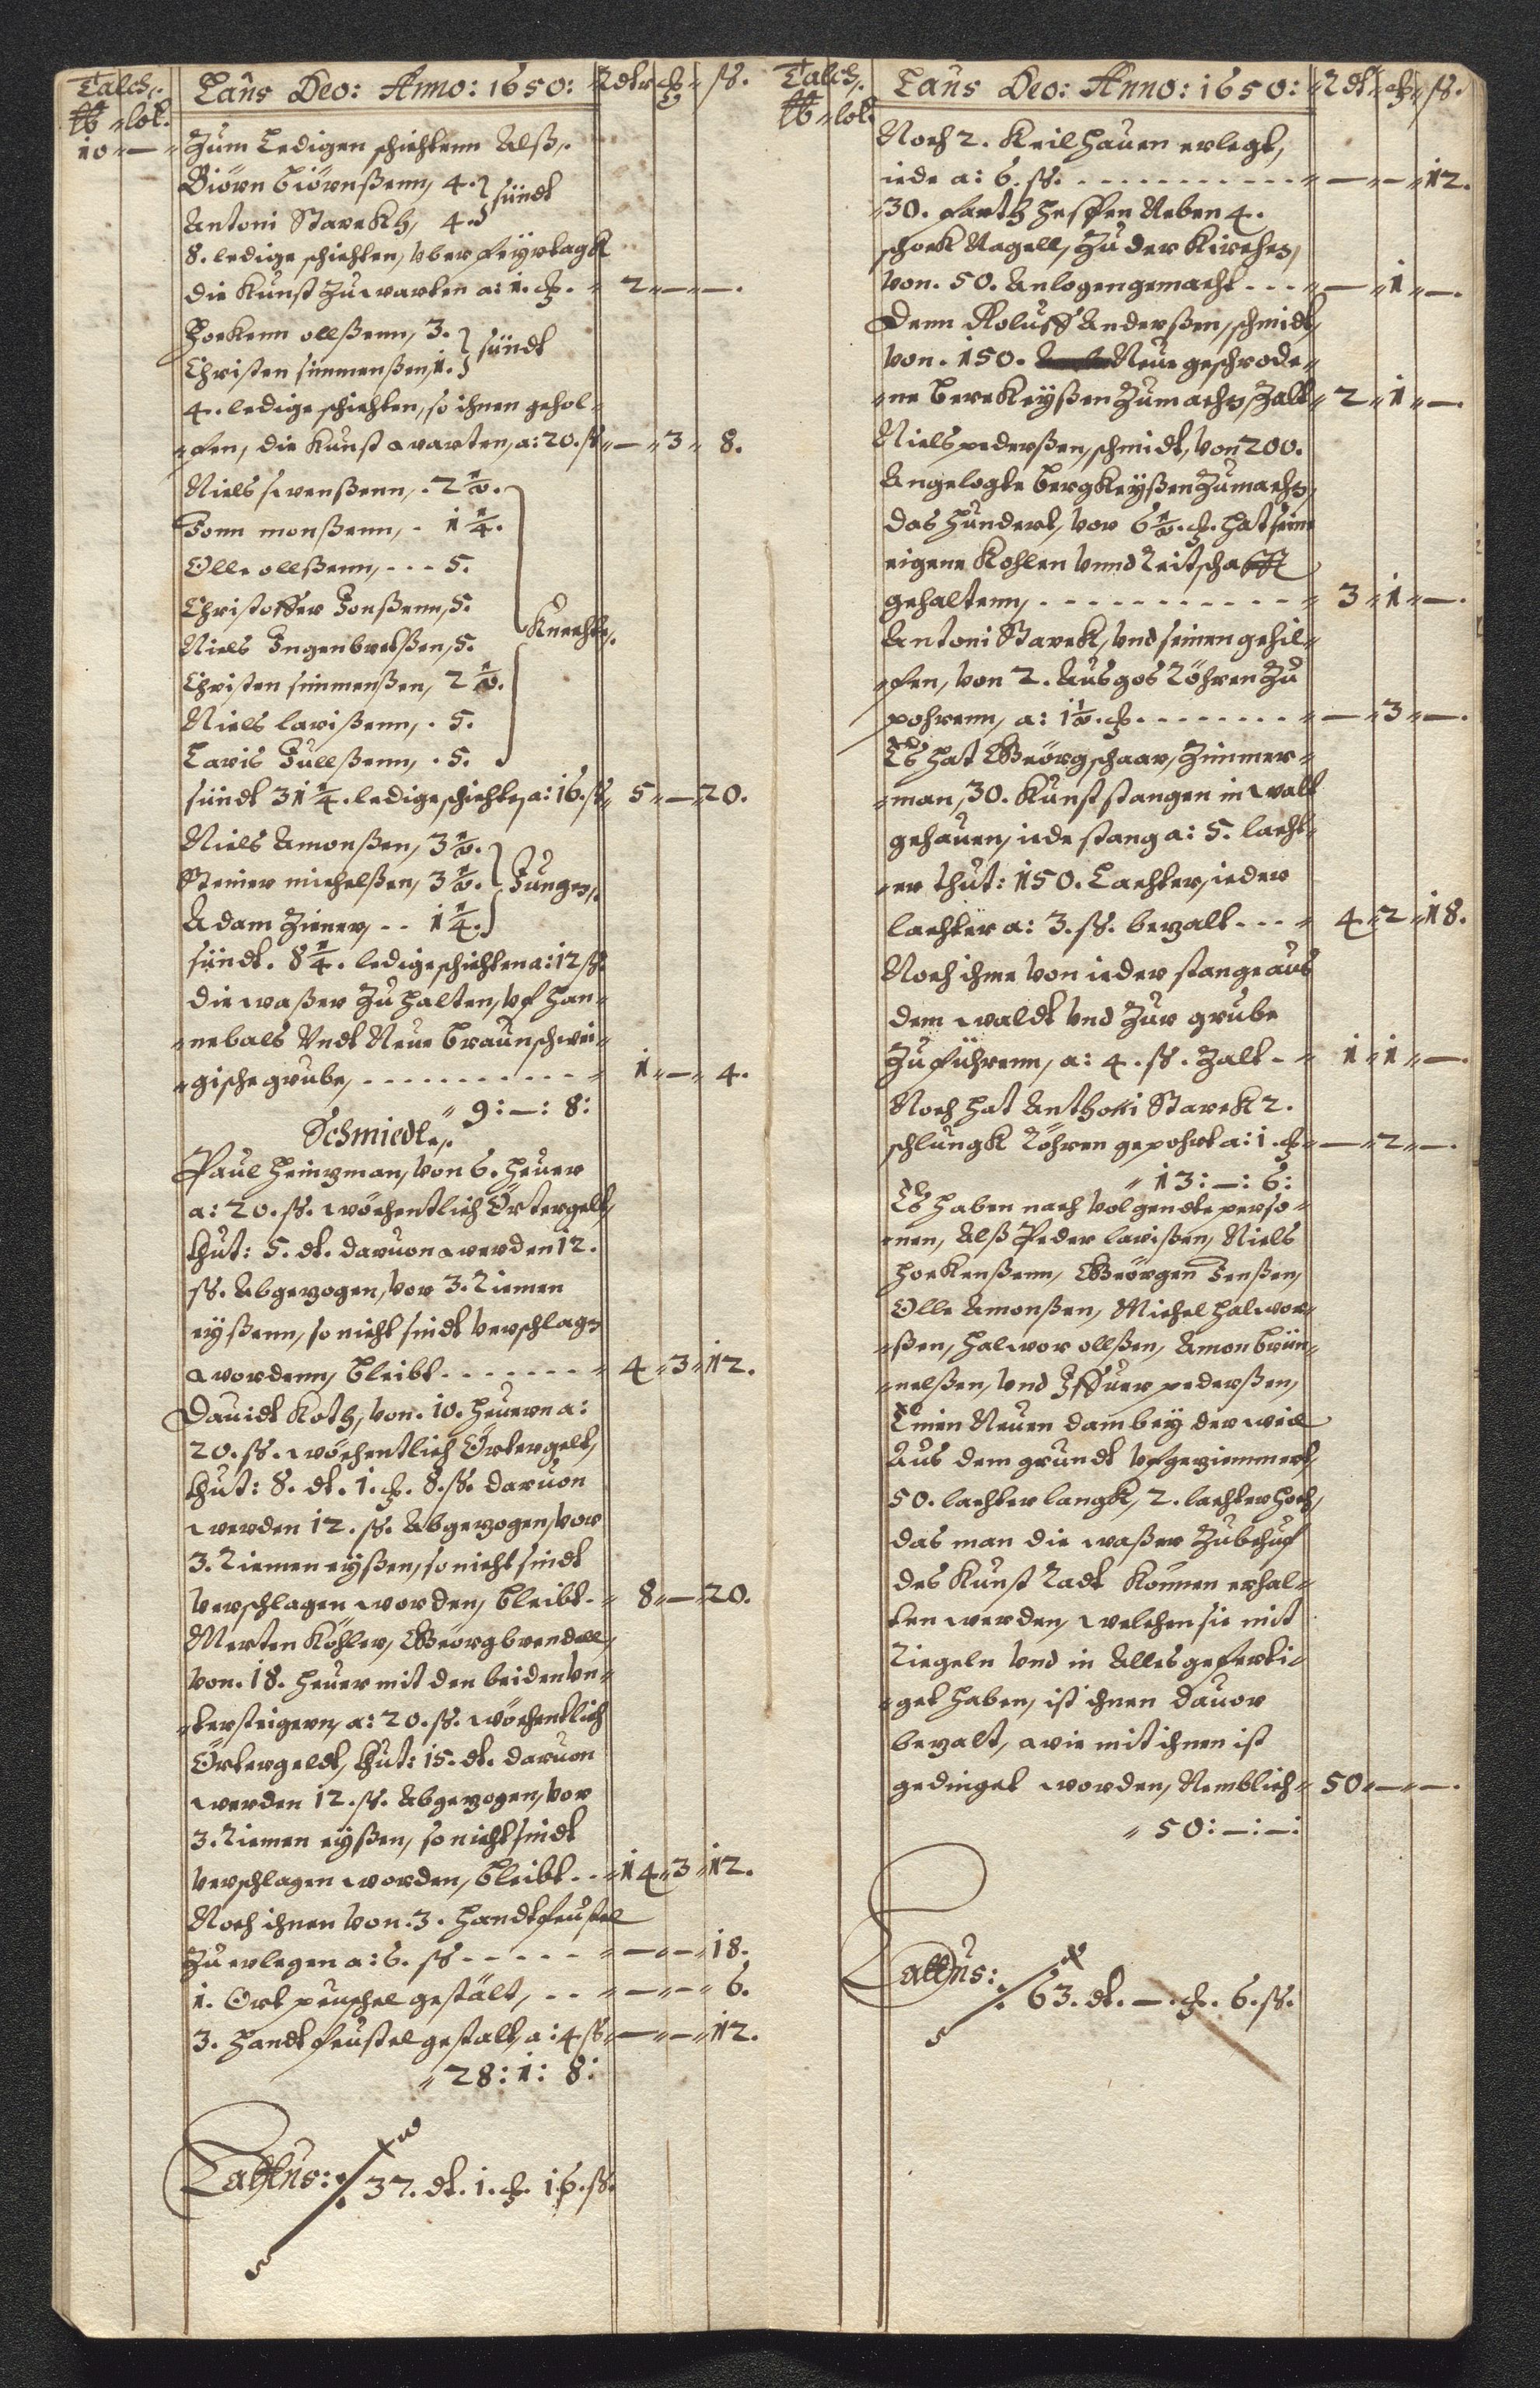 Talch.
℔ lot.
Laus Deo: Anno: 1650:
Rdtr ß.
10 — Zum Ledigen schichtenn Alß,
Biörn Biörnßenn, 4. sündt
Antoni Starckh, 4.
8. ledige schichten, vber feyrtagk
die Kunst Zuwarten a: 1. 2 — —.
Hockenn ollßenn, 3. sündt
Christen simmenßen, 1.
4. ledige schichten, so ihnen gehol-
-fen, die Kunst warten, a: 20. ß — 3 8.
Niels swenßenn, 2 ½.
Jonn monßenn, 1 ¼.
Olle ollßenn, 5.
Christoffer Jonßenn, 5.
Knechte.
Niels Ingenbretßen, 5.
Christen simmenßen, 2 ½.
Niels larißenn, 5.
Laris Jullßenn, 5.
sündt 31 ¼. ledige schichten a: 16. ß 5 — 20.
Niels Amonßen, 3 ½.
Steiner michelßen, 3 ½. Jungen,
Adam Ziener, 1 ¼.
sündt. 8 ¼. ledige schichten a: 12 ß.
die waßer Zu halten, vf Han-
-nebals Vndt Neue Braunschwei-
-gische grube, 1 — 4.
9: —: 8:
Schmiedte,
Paul Heinzman, von 6. Heuer
a: 20. ß. wöchentlich Örtergelt,
thut: 5. dt. daruon werden 12.
ß. Abgezogen, vor 3. Riemen
eyßenn, so nicht sindt verschlagen
wordenn, bleibt 4 3 12.
Dauidt Koth, von. 10. Heuern a:
20. ß. wöchentlich Örtergelt,
thut: 8. dt. 1. 8. ß. daruon
werden 12. ß. Abgezogen, vor
3. Riemen eyßen, so nicht sindt
verschlagen worden, bleibt 8 — 20.
Merten Köhler, Geörg brendell,
von. 18. Heuer mit den beiden vn-
-tersteigern, a: 20. ß. wöchentlich
Örtergeldt, thut: 15. dt. daruon
werden 12. ß. Abgezogen, vor
3. Riemen eyßen, so nicht sindt
verschlagen worden, bleibt 14 3 12.
Noch ihnen von. 3. Handtfeustel
Zu erlegen a: 6. ß — — 18.
1. Ort peuschel gestält, — — 6.
3. Handt feustel gestalt, a: 4 ß — — 12.
28: 1: 8:
Lattus: 37. dt. 1. 16. ß.
Talch.
℔ lot.
Laus Deo: Anno: 1650:
Rdt ß.
Noch 2. Keilhauen erlegt,
iede a: 6. ß. — — 12.
30. Neben 4.
schock Nagell, Zu der Kirchen,
von. 50. Anlogen gemacht — 1 —.
Denn Roluff Anderßen, schmidt,
von. 150. Neue geschrode-
-ne Berckeyßen Zumachen, Zalt 2 1 —.
Niels pederßen, schmidt, von 200.
Angelogte Bergkeyßen Zumachen,
das Hundert, vor 6 ½. hat seine
eigene Kohlen vnnd Reitschafft
gehaltenn, 3 1 —.
Antoni Starck, vnd seinen gehil-
-fen, von 2. Ausgos Röhren Zu
pohrenn, a: 1 ½. — 3 —.
Es hat Geörg schaar, Zimmer-
-man, 30. Kunststangen in walt
gehauen, iede stang a: 5. lacht-
-er thut: 150. Lachter, ieder
lachter a: 3. ß. bezalt 4 2 18.
Noch ihme von ieder stange aus
dem waldt vnd Zur grube
Zu führenn, a: 4. ß. Zalt 1 1 —.
Noch hat Anthoni Starck 2.
schlungk Röhren gepohrt a: 1. — 2 —.
13: —: 6:
Es haben nach volgendte perso-
-nen, Alß Peder larißen, Niels
Hockenßenn, Geörgen Jenßen,
Olle Amonßen, Michel Halwor-
-ßen, Halwor ollßen, Amon brün-
-nelßen, vnd Iffuer pederßen,
Einen Neuen dam bey der weil
Aus dem grundt vfgezimmert,
50. lachter langk, 2. lachter hoch,
das man die waßer Zubehuf
des Kunst Radt können erhal-
-ten werden, welchen sie mit
Riegeln vnd in Alles geferti-
-get haben, ist ihnen dauor
bezalt, wie mit ihnen ist
gedinget worden, Nemblich 50 — —.
50: —: —:
Lattus: 63. dt. —. 6. ß.